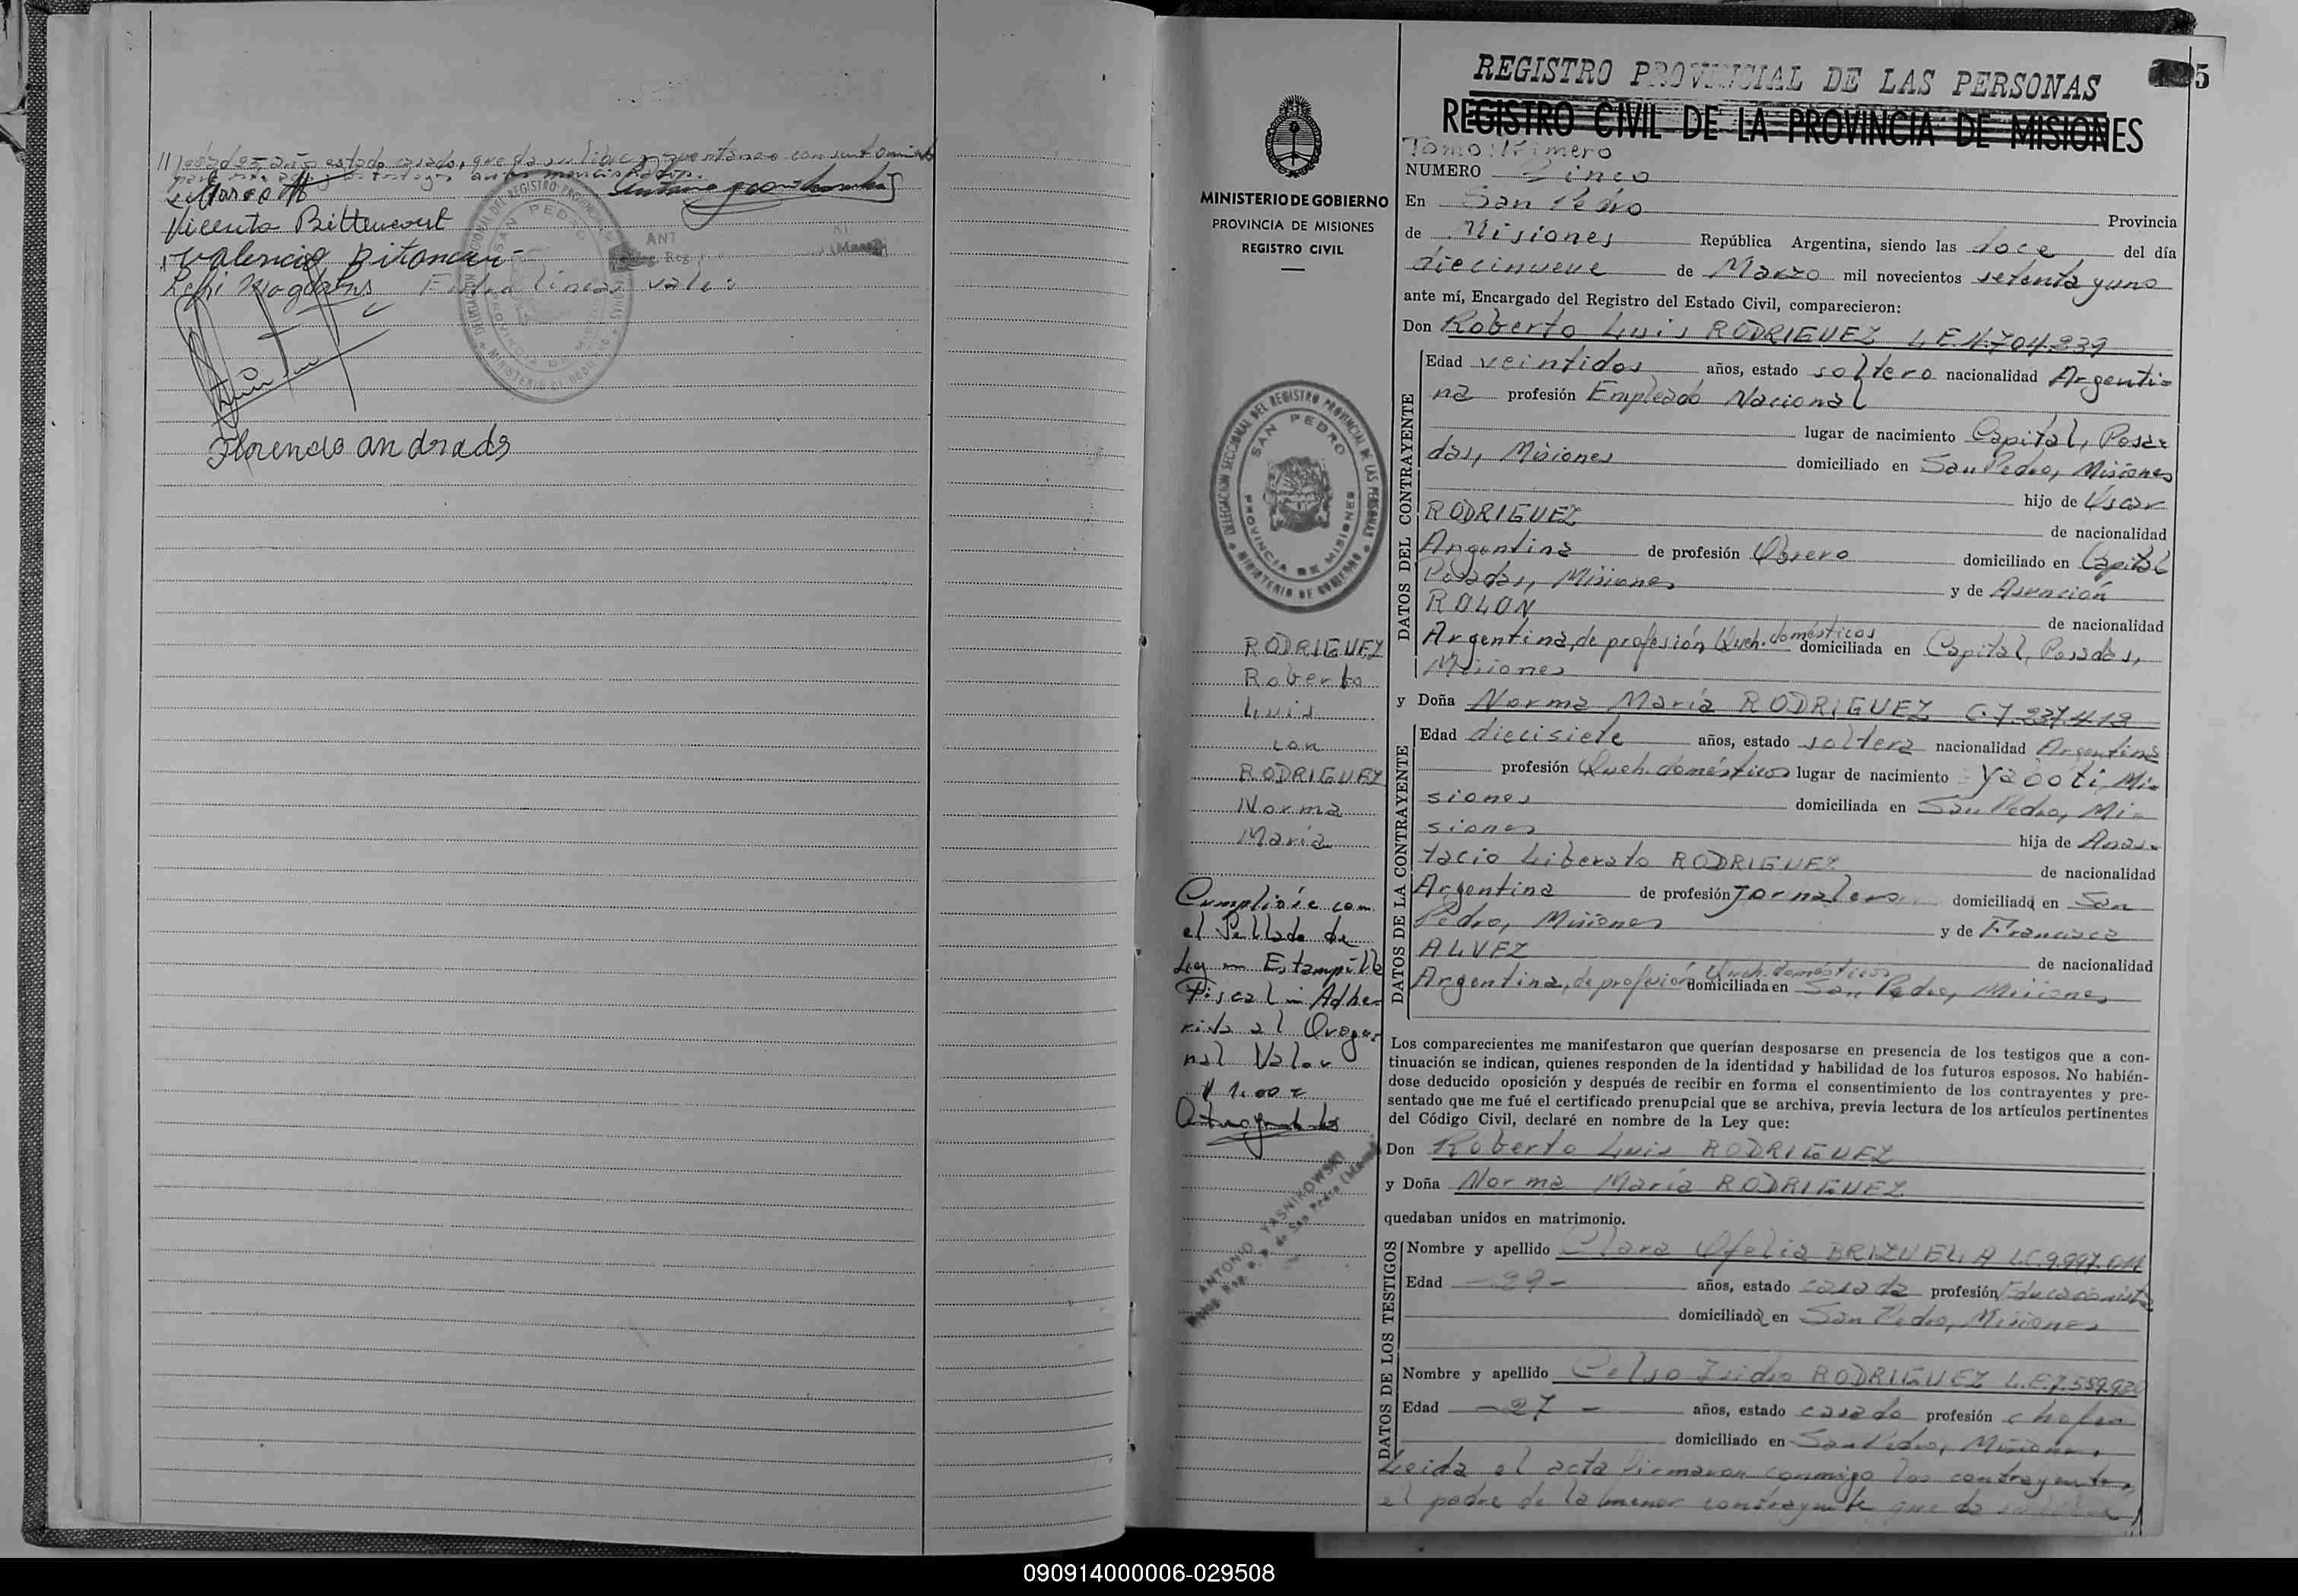 edad 25 años estado casado, que da su libre y espontaneo consentimiento
Vicente Bittencourt
Valencio Bitancur
Entre lineas vale:
DELEGACION SECCIONAL DEL REGISTRO PROVINCIAL DE LAS PERSONAS
SAN PEDRO
PROVINCIA DE MISIONES
MINISTERIO DE GOBIERNO
Florencio andrade
5
REGISTRO PROVINCIAL DE LAS PERSONAS
REGISTRO CIVIL DE LA PROVINCIA DE MISIONES
MINISTERIO DE GOBIERNO
PROVINCIA DE MISIONES
REGISTRO CIVIL
DELEGACION SECCIONAL DEL REGISTRO PROVINCIAL DE LAS PERSONAS
SAN PEDRO
PROVINCIA DE MISIONES
MINISTERIO DE GOBIERNO
RODRIGUEZ
Roberto
Luis
con
RODRIGUEZ
Norma
María
Cumplióse con
el Sellado de
Ley en Estampilla
Fiscal Adhe-
rida al Origi-
nal Valor
$ 1.00
ANTONIO YASNIKOWSKI
de San Pedro
Tomo: Primero
NUMERO Cinco
En San Pedro Provincia
de Misiones República Argentina, siendo las doce del día
diecinueve de Marzo mil novecientos setenta y uno
ante mí, Encargado del Registro del Estado Civil, comparecieron:
Don Roberto Luis RODRIGUEZ L.E.4.704.239
DATOS DEL CONTRAYENTE
Edad veintidos años, estado soltero nacionalidad Argenti-
na profesión Empleado Nacional
lugar de nacimiento Capital, Posa-
das, Misiones domiciliado en San Pedro, Misiones
hijo de Oscar
RODRIGUEZ de nacionalidad
Argentina de profesión Obrero domiciliado en Capital
Posadas, Misiones y de Asunción
ROLON de nacionalidad
Argentina, de profesión Queh. domésticos domiciliada en Capital, Posadas,
Misiones
y Doña Norma María RODRIGUEZ C.I.237.413
DATOS DE LA CONTRAYENTE
Edad diecisiete años, estado soltera nacionalidad Argentina
profesión Queh. domésticos lugar de nacimiento Yaboti, Mi-
siones domiciliada en San Pedro, Mi-
siones hija de Anas-
tacio Liberato RODRIGUEZ de nacionalidad
Argentina de profesión Jornalero domiciliado en San
Pedro, Misiones y de Francisca
ALVEZ de nacionalidad
Argentina, de profesión Queh. domésticos domiciliada en San Pedro, Misiones
Los comparecientes me manifestaron que querían desposarse en presencia de los testigos que a con-
tinuación se indican, quienes responden de la identidad y habilidad de los futuros esposos. No habién-
dose deducido oposición y después de recibir en forma el consentimiento de los contrayentes y pre-
sentado que me fué el certificado prenupcial que se archiva, previa lectura de los artículos pertinentes
del Código Civil, declaré en nombre de la Ley que:
Don Roberto Luis RODRIGUEZ
y Doña Norma María RODRIGUEZ
quedaban unidos en matrimonio.
DATOS DE LOS TESTIGOS
Nombre y apellido Clara Ofelia BRIZUELA L.C.9.997.011
Edad -29- años, estado casada profesión Educacionista
domiciliada en San Pedro, Misiones
Nombre y apellido Celso Isidro RODRIGUEZ L.E.7.589.920
Edad -27- años, estado casado profesión chofer
domiciliado en San Pedro, Misiones.
Leida el acta firmaron conmigo los contrayentes,
el padre de la menor contrayente que da su
090914000006-029508